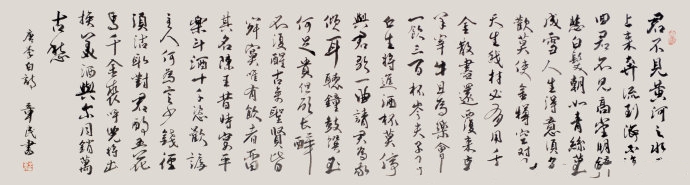 君不見黃河之水天
上來奔流到海不復
回君不見高堂明鏡
悲白髮朝如青絲暮
成雪人生得意須盡
歡莫使金樽空對月
天生我材必有用千
金散盡還復來烹
羊宰牛且為樂會須
一飲三百杯岑夫子丹
丘生將進酒杯莫停
與君歌一曲請君為我
傾耳聽鐘鼓饌玉
何足貴但願長醉
不復醒古來聖賢皆
寂寞唯有飲者留
其名陳王昔時宴平
樂斗酒十千恣歡謔
主人何為言少錢徑
須沽取對君酌五花
馬千金裘呼兒將出
換美酒與爾同銷萬
古愁
唐李白詩 章民書